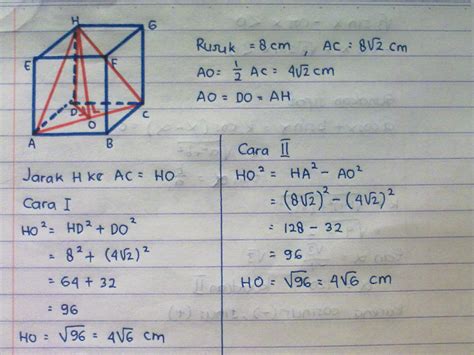 H G
E F
D C
O
A B
Rusuk = 8 cm, AC = 8√2 cm
AO = 1/2 AC = 4√2 cm
AO = DO = AH
Jarak H ke AC = HO
Cara I
HO² = HD² + DO²
= 8² + (4√2)²
= 64 + 32
= 96
HO = √96 = 4√6 cm
Cara II
HO² = HA² - AO²
= (8√2)² - (4√2)²
= 128 - 32
= 96
HO = √96 = 4√6 cm